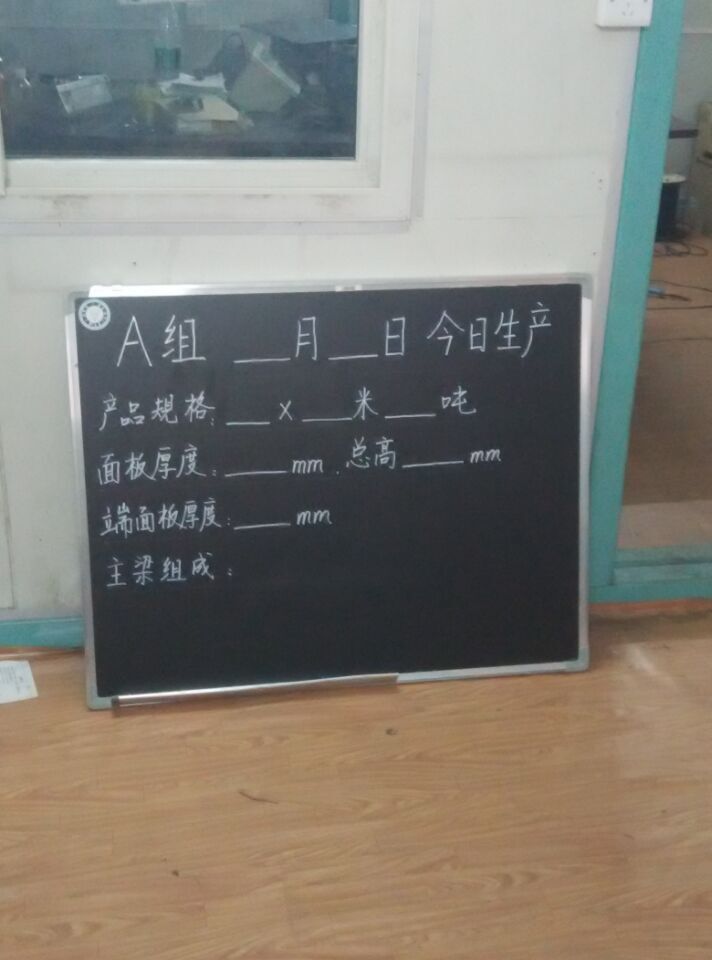 A组 __月__日 今日生产
产品规格:__x__米__吨
面板厚度:__mm.总高__mm
端面板厚度:__mm
主梁组成: